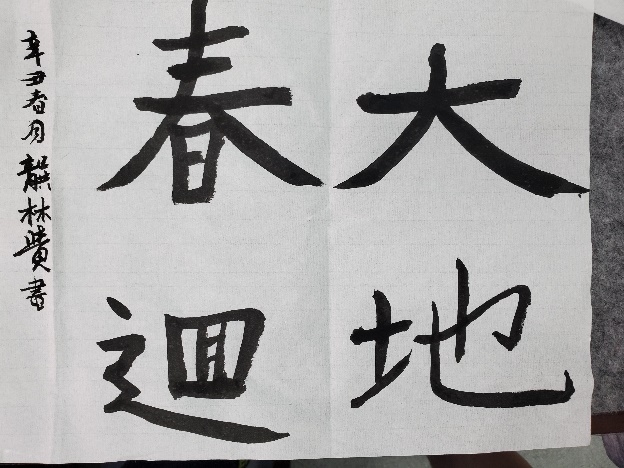 大地
春迴
辛丑春月 林 書